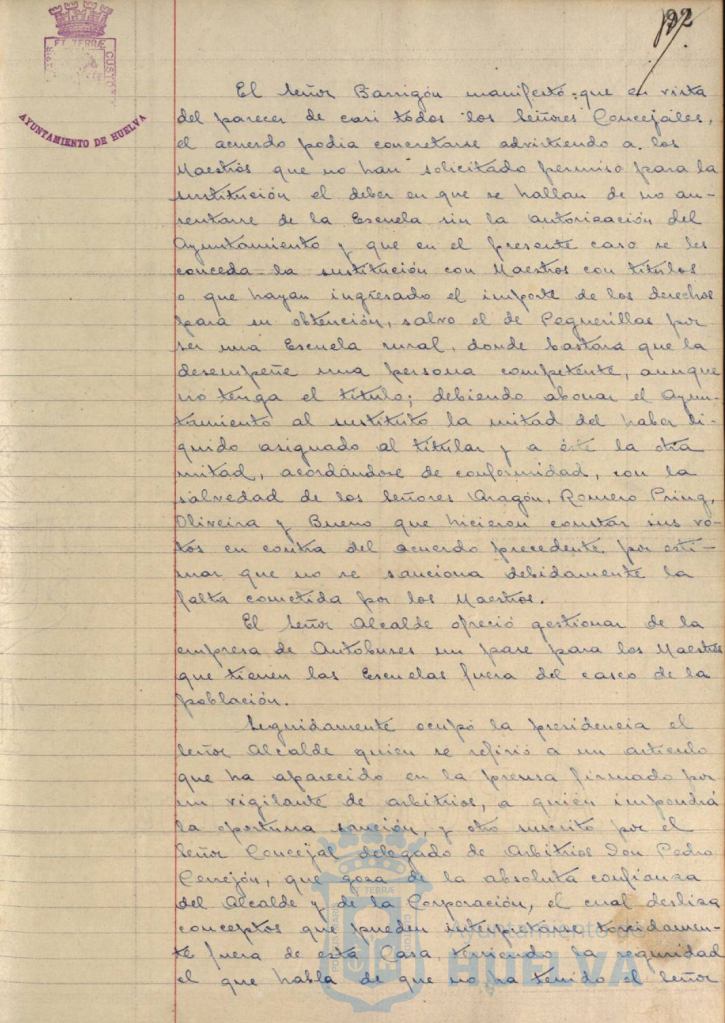 192
AYUNTAMIENTO DE HUELVA
El Señor Barrigón manifestó: que en vista
del parecer de casi todos los Señores Concejales,
el acuerdo podia concretarse advirtiendo a los
Maestros que no han solicitado permiso para la
sustitución el deber en que se hallan de no au-
sentarse de la Escuela sin la autorización del
Ayuntamiento y que en el presente caso se les
conceda la sustitución con Maestros con titulos
o que hayan ingresado el importe de los derechos
para su obtención, salvo el de Peguerillas por
ser una Escuela rural, donde bastara que la
desempeñe una persona competente, aunque
no tenga el titulo; debiendo abonar el Ayun-
tamiento al sustituto la mitad del haber li-
quido asignado al titular y a éste la otra
mitad, acordándose de conformidad, con la
salvedad de los Señores Aragón, Romero Pring,
Oliveira y Bueno que hicieron constar sus vo-
tos en contra del acuerdo precedente por esti-
mar que no se sanciona debidamente la
falta cometida por los Maestros.
El Señor Alcalde ofreció gestionar de la
empresa de Autobuses un pase para los Maestros
que tienen las Escuelas fuera del casco de la
población.
Seguidamente ocupó la presidencia el
Señor Alcalde quien se refirió a un articulo
que ha aparecido en la prensa firmado por
un vigilante de arbitrios, a quien impondrá
la oportuna sanción, y otro suscrito por el
Señor Concejal delegado de Arbitrios Don Pedro
Cerrejón, que goza de la absoluta confianza
del Alcalde y de la Corporación, el cual desliza
conceptos que pueden interpretarse torcidamen-
te fuera de esta Casa, teniendo la seguridad
el que habla de que no ha tenido el Señor
Ayuntamiento de
HUELVA